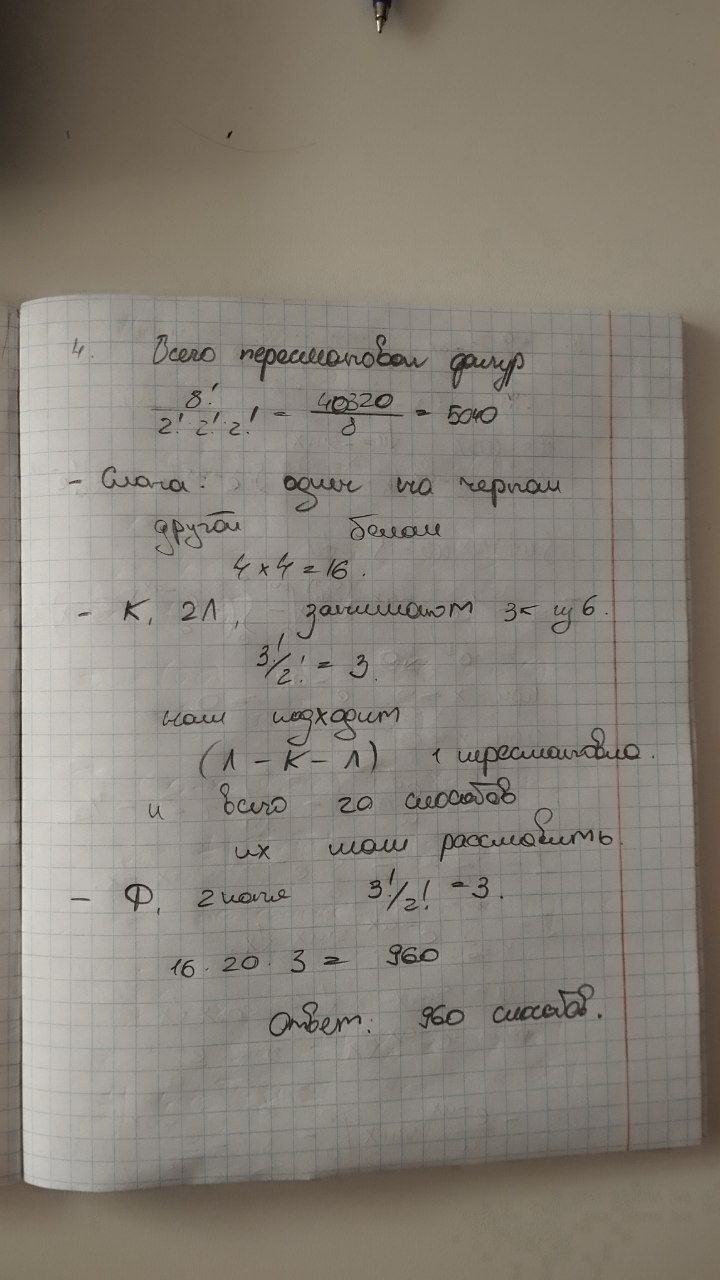 4. Всего перестановок фигур
8! / 2! · 2! · 2! = 40320 / 8 = 5040
- Слона: один на черном
другой белом
4 × 4 = 16.
- К, 2Л, занимают 3к из 6.
3!/2! = 3.
нам подходит
(Л – К – Л) 1 перестановка.
и всего 20 способов
их там расставить.
- Ф, 2 коня 3!/2! = 3.
16 · 20 · 3 = 960
Ответ: 960 способов.